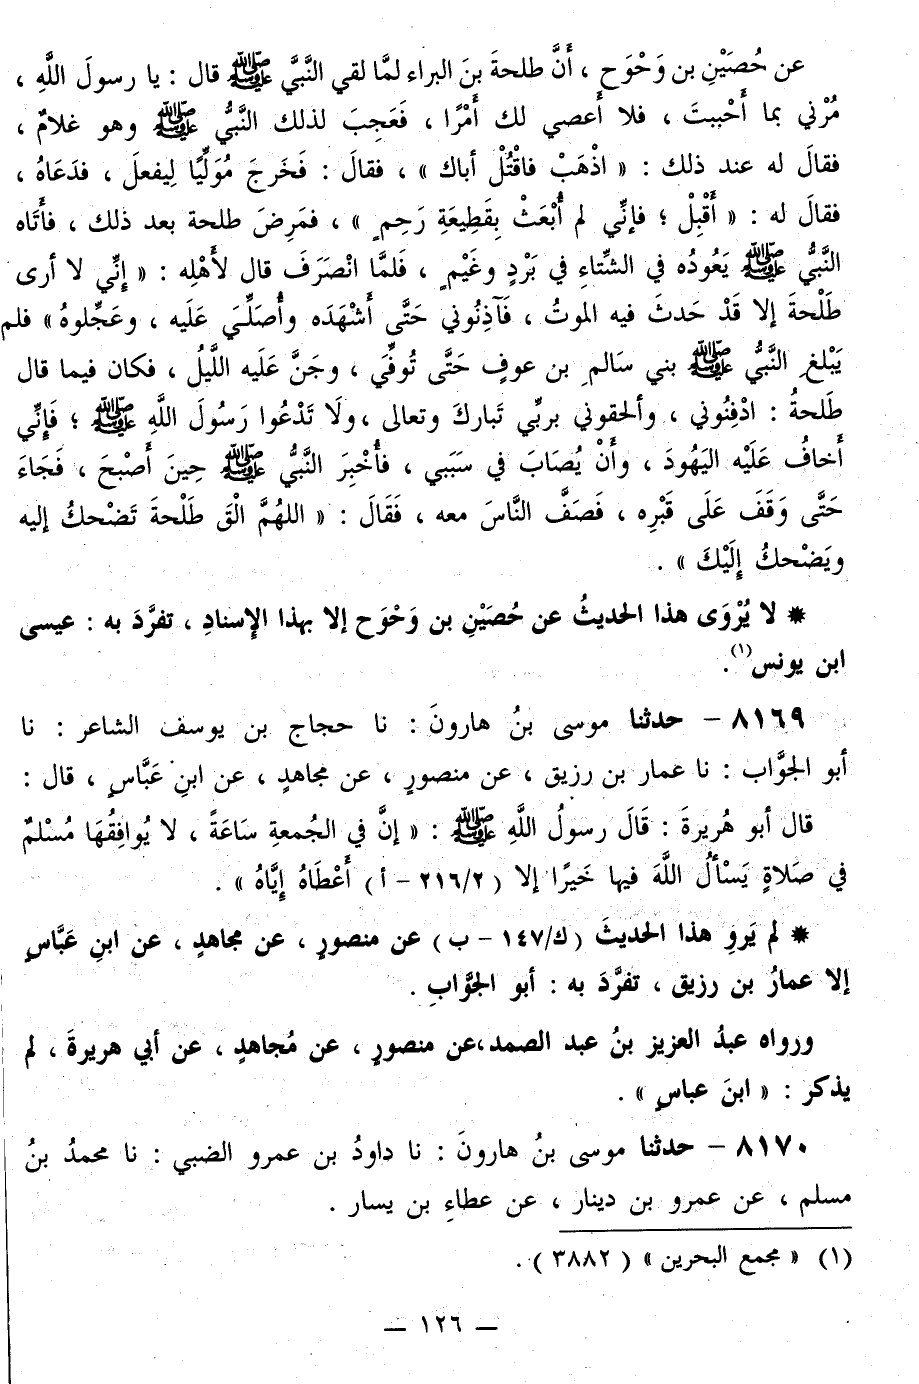 عن حُصَيْنِ بن وَحْوَحٍ ، أَنَّ طلحةَ بنَ البراء لمَّا لقي النَّبيَّ ﷺ قال : يا رسولَ اللَّهِ ،
مُرْني بما أَحْببتَ ، فلا أَعصي لك أَمْرًا ، فَعَجِبَ لذلك النَّبيُّ ﷺ وهو غلامٌ ،
فقالَ له عند ذلك : « اذْهَبْ فاقْتُلْ أباك » ، فقالَ : فَخَرجَ مُوَلِّيًا لِيفعلَ ، فدَعَاهُ ،
فقالَ له : « أَقْبِلْ ؛ فإنِّي لم أُبْعَثْ بِقَطِيعَةِ رَحِمٍ » ، فمَرِضَ طلحة بعد ذلك ، فأتَاه
النَّبيُّ ﷺ يَعُودُه في الشِّتاءِ في بَرْدٍ وغَيْمٍ ، فَلمَّا انْصَرَفَ قال لأَهْلِه : « إنِّي لا أرى
طَلْحةَ إلا قَدْ حَدثَ فيه الموتُ ، فَآذِنُوني حَتَّى أَشْهَدَه وأُصَلِّيَ عَلَيه ، وعَجِّلوهُ » فلم
يَبْلغِ النَّبيُّ ﷺ بني سَالمِ بن عوفٍ حَتَّى تُوفِّيَ ، وجَنَّ عَلَيه اللَّيلُ ، فكان فيما قال
طَلحةُ : ادْفِنُوني ، وألحقوني بربِّي تَباركَ وتعالى ، ولَا تَدْعُوا رَسُولَ اللَّهِ ﷺ ؛ فَإِنِّي
أَخافُ عَلَيْه اليَهُودَ ، وأَنْ يُصَابَ في سَبَبي ، فأُخْبِرَ النَّبيُّ ﷺ حِينَ أَصْبحَ ، فَجَاءَ
حَتَّى وَقَفَ عَلَى قَبْرِه ، فَصَفَّ النَّاسَ معه ، فَقَالَ : « اللهُمَّ الْقَ طَلْحةَ تَضْحكُ إليه
ويَضْحكُ إِلَيْكَ » .
* لا يُرْوَى هذا الحديثُ عن حُصَيْنِ بن وَحْوَحٍ إلا بهذا الإسنادِ ، تفرَّدَ به : عيسى
ابن يونس(١).
٨١٦٩ – حدثنا موسى بنُ هارونَ : نا حجاج بن يوسف الشاعر : نا
أبو الجوَّاب : نا عمار بن رزيق ، عن منصورٍ ، عن مجاهدٍ ، عن ابنِ عَبَّاسٍ ، قال :
قال أبو هُريرةَ : قَالَ رسولُ اللَّهِ ﷺ : « إنَّ في الجُمعةِ سَاعَةً ، لا يُوافِقُهَا مُسْلمٌ
في صَلاةٍ يَسْألُ اللَّهَ فيها خَيرًا إلا (٢١٦/٢ – أ) أَعْطَاهُ إيَّاهُ » .
* لم يَروِ هذا الحديثَ (ك/١٤٧ – ب) عن منصورٍ ، عن مجاهدٍ ، عن ابنِ عَبَّاسٍ
إلا عمارُ بن رزيق ، تفرَّدَ به : أبو الجوَّابِ .
ورواه عبدُ العزيز بنُ عبد الصمد،عن منصورٍ ، عن مُجاهدٍ ، عن أبي هريرةَ ، لم
يذكر : « ابنَ عباسٍ » .
٨١٧٠ – حدثنا موسى بنُ هارونَ : نا داودُ بن عمرو الضبي : نا محمدُ بنُ
مسلم ، عن عمرو بن دينار ، عن عطاءِ بن يسار .
(١) « مجمع البحرين » (٣٨٨٢) .
— ١٢٦ —